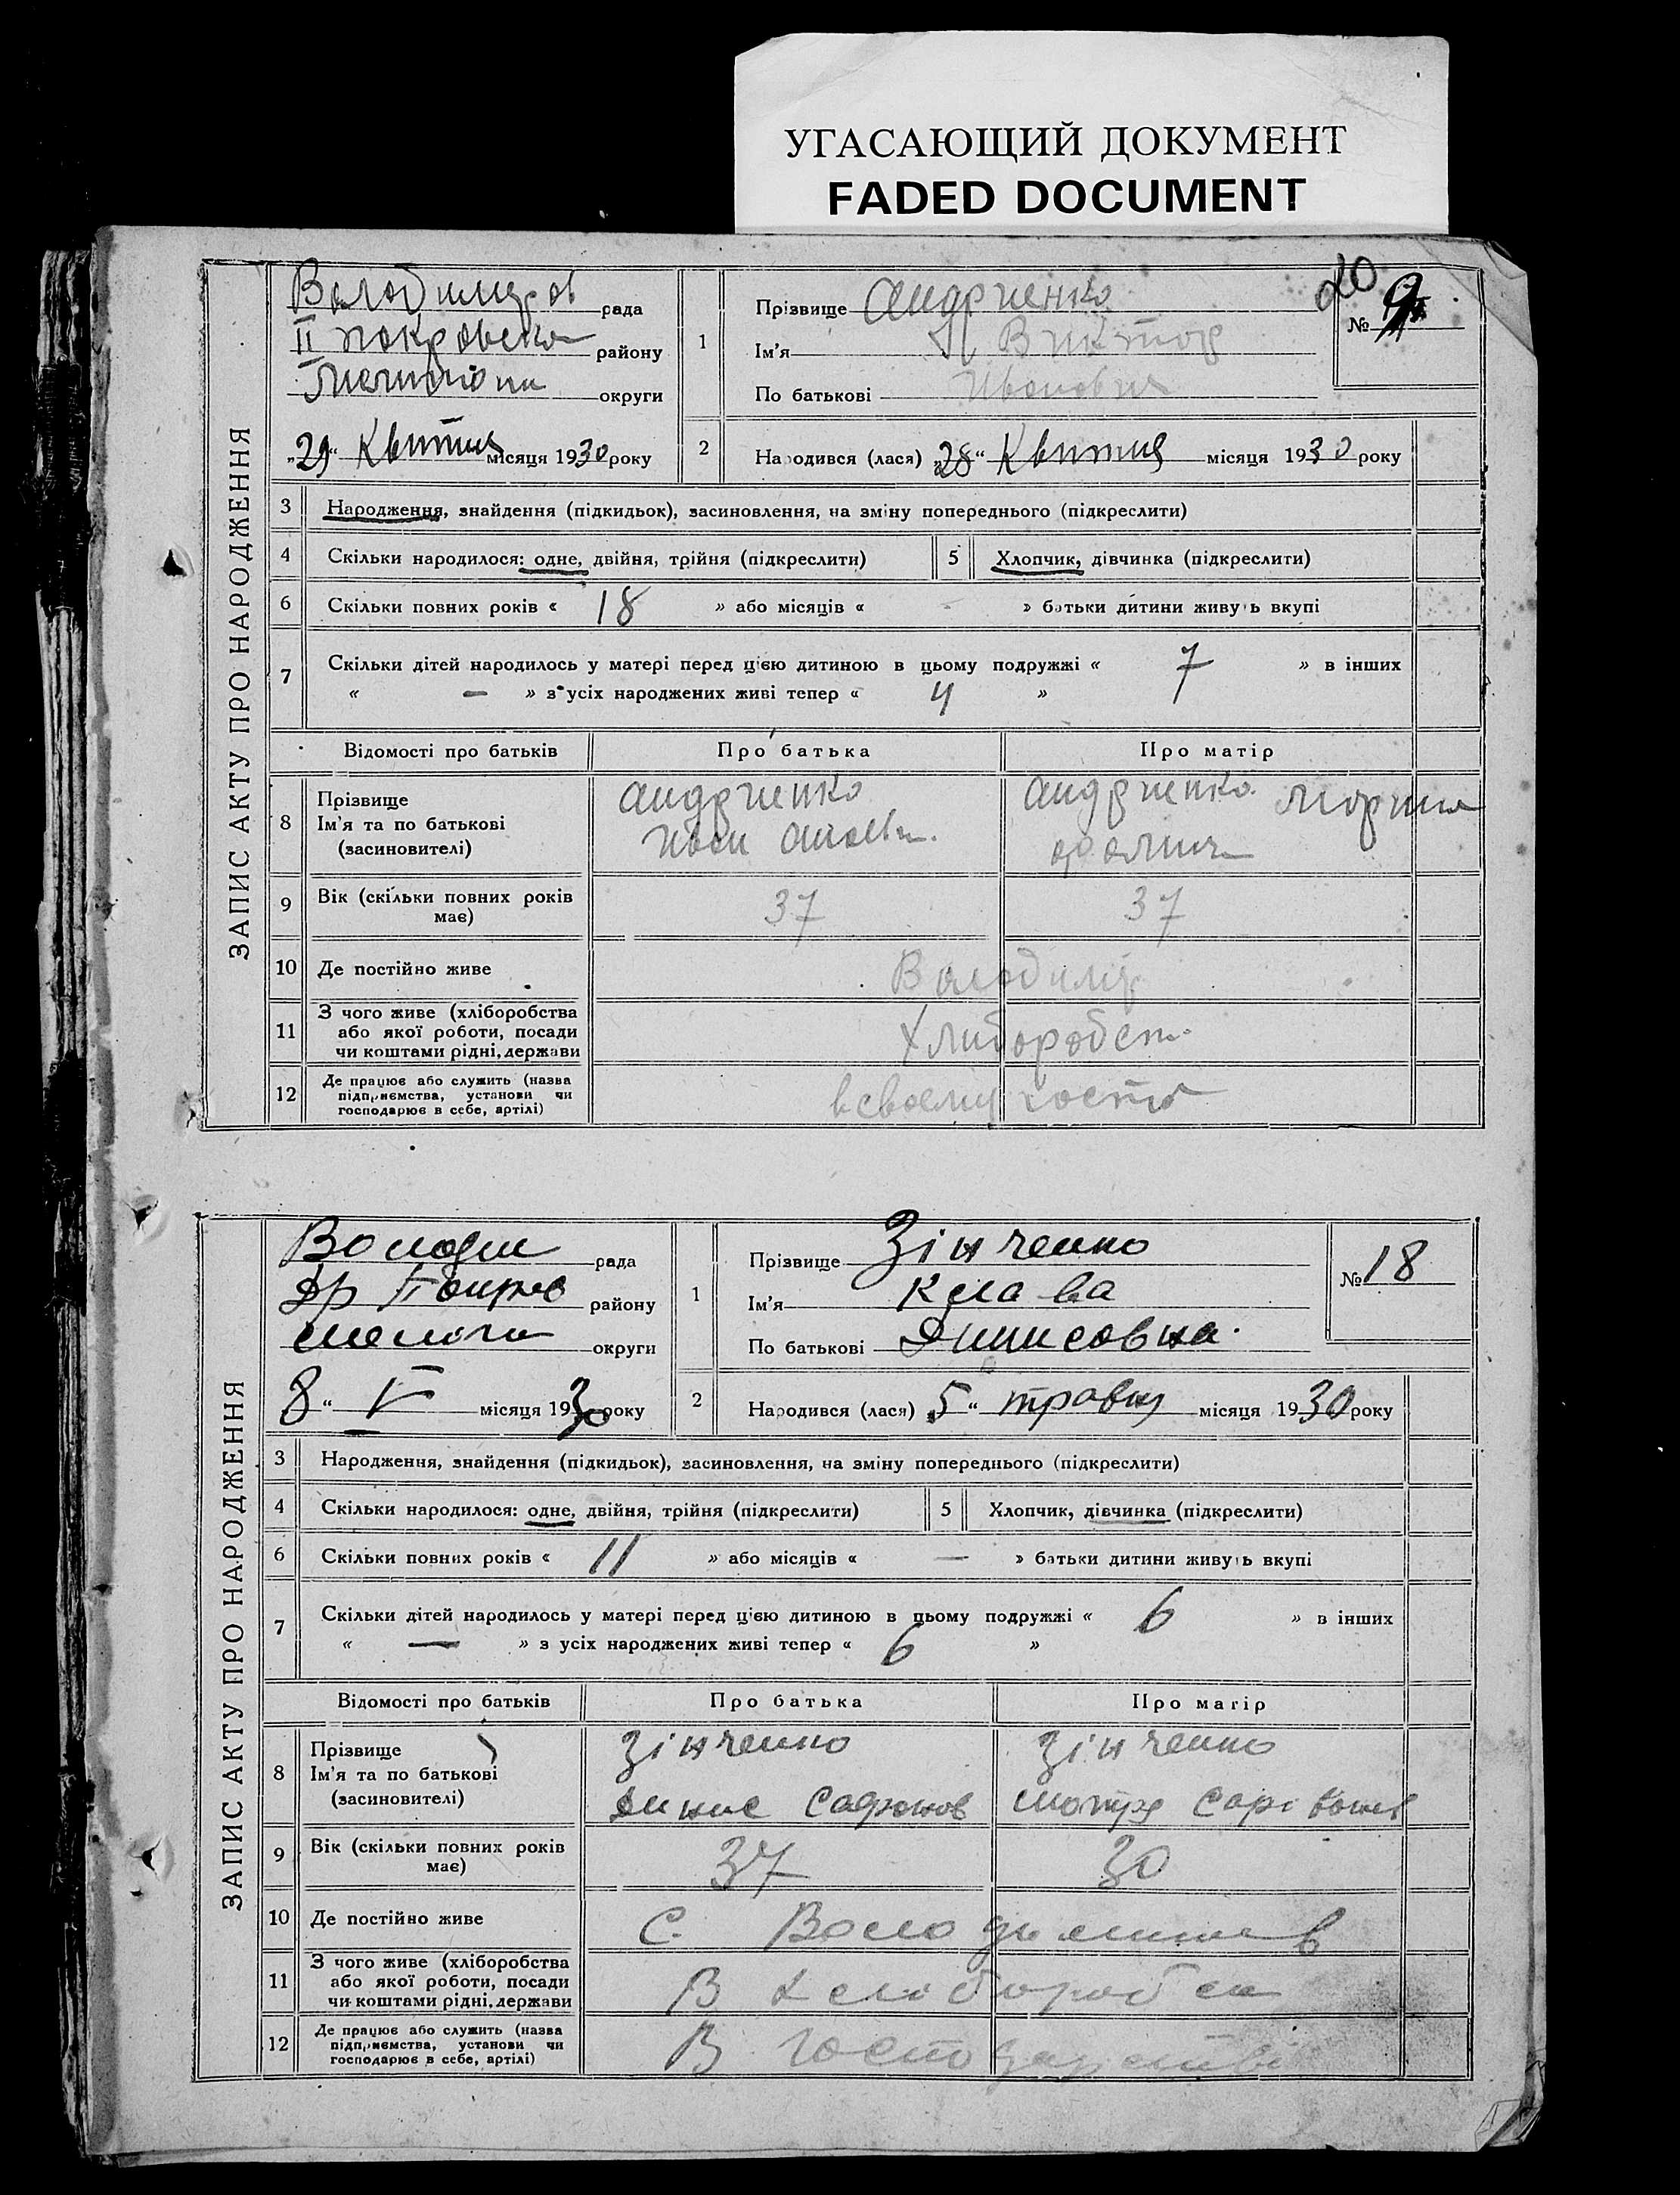 УГАСАЮЩИЙ ДОКУМЕНТ
FADED DOCUMENT
20
ЗАПИС АКТУ ПРО НАРОДЖЕННЯ
Володимиров рада
II покровско району
округи
„29“ Квитня місяця 1930 року
1
Прізвище Андриенко
Ім'я Виктор
По батькові Иванович
№ 9
2 Народився (лася) „28“ Квитня місяця 1930 року
3 Народження, знайдення (підкидьок), засиновлення, на зміну попереднього (підкреслити)
4 Скільки народилося: одне, двійня, трійня (підкреслити) 5 Хлопчик, дівчинка (підкреслити)
6 Скільки повних років « 18 » або місяців « - » батьки дитини живуть вкупі
7 Скільки дітей народилось у матері перед цією дитиною в цьому подружжі « 7 » в інших
« — » з усіх народжених живі тепер « 4 »
Відомості про батьків Про батька Про матір
8 Прізвище
Ім'я та по батькові
(засиновителі)
Андриенко
Иван
Андриенко
9 Вік (скільки повних років має) 37 37
10 Де постійно живе Володимир
11 З чого живе (хліборобства
або якої роботи, посади
чи коштами рідні, держави
Хлиборобст
12 Де працює або служить (назва
підприємства, установи чи
господарює в себе, артілі)
в своему госпо
ЗАПИС АКТУ ПРО НАРОДЖЕННЯ
Володим рада
району
округи
8 “ V місяця 1930 року
1
Прізвище Зінченко
Ім'я Клава
По батькові Динисовна
№ 18
2 Народився (лася) „5“ травня місяця 1930 року
3 Народження, знайдення (підкидьок), засиновлення, на зміну попереднього (підкреслити)
4 Скільки народилося: одне, двійня, трійня (підкреслити) 5 Хлопчик, дівчинка (підкреслити)
6 Скільки повних років « 11 » або місяців « — » батьки дитини живуть вкупі
7 Скільки дітей народилось у матері перед цією дитиною в цьому подружжі « 6 » в інших
« — » з усіх народжених живі тепер « 6 »
Відомості про батьків Про батька Про матір
8 Прізвище
Ім'я та по батькові
(засиновителі)
Зінченко
Динис Сафронов
Зінченко
Мотря
9 Вік (скільки повних років має) 37 30
10 Де постійно живе С.
11 З чого живе (хліборобства
або якої роботи, посади
чи коштами рідні, держави
В хліборобст
12 Де працює або служить (назва
підприємства, установи чи
господарює в себе, артілі)
В господарстві